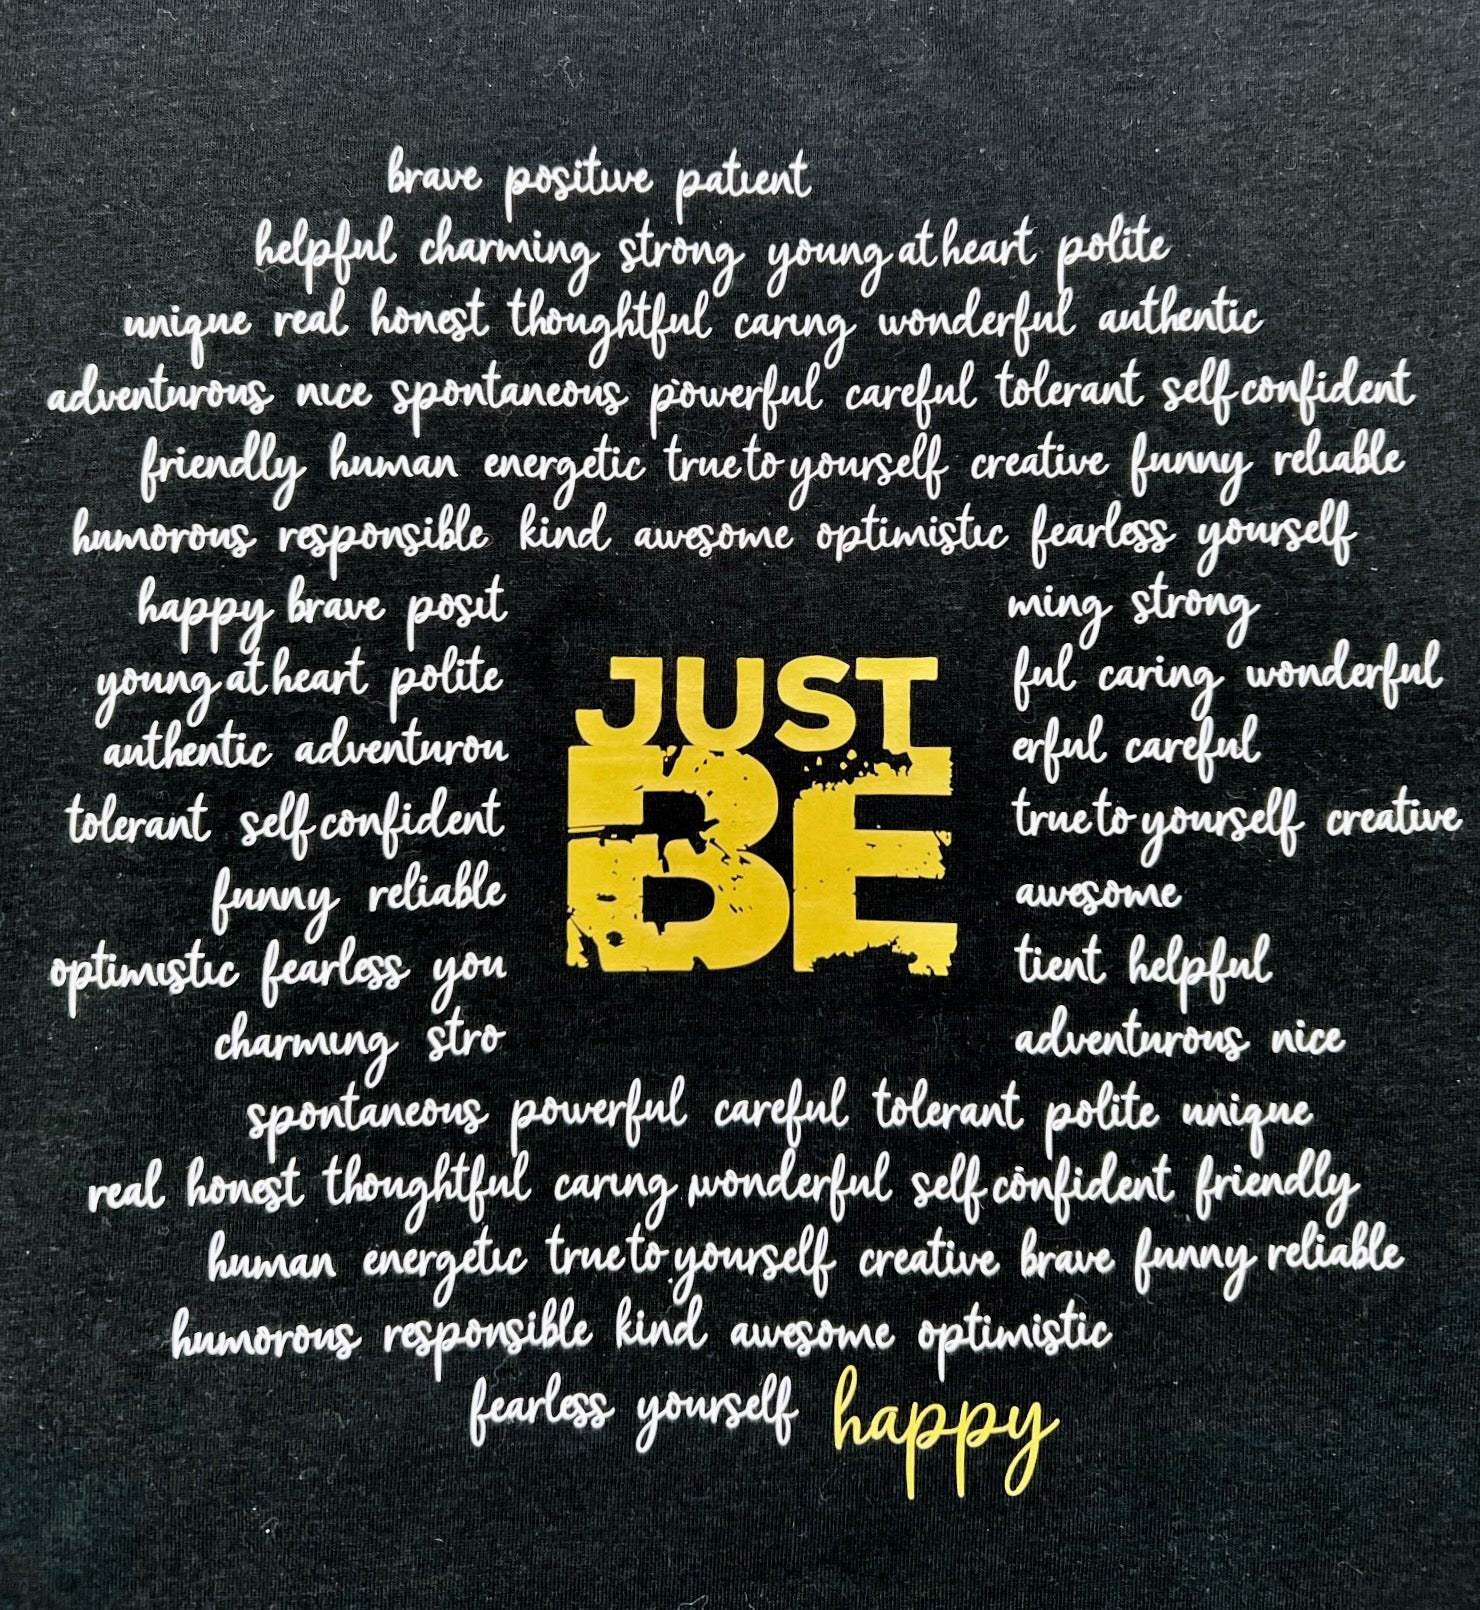 brave positive patient
helpful charming strong young at heart polite
unique real honest thoughtful caring wonderful authentic
adventurous nice spontaneous powerful careful tolerant self confident
friendly human energetic true to yourself creative funny reliable
humorous responsible kind awesome optimistic fearless yourself
happy brave posit ming strong
young at heart polite ful caring wonderful
JUST
authentic adventurou erful careful
tolerant self confident true to yourself creative
BE
funny reliable awesome
optimistic fearless you tient helpful
charming stro adventurous nice
spontaneous powerful careful tolerant polite unique
real honest thoughtful caring wonderful self confident friendly
human energetic true to yourself creative brave funny reliable
humorous responsible kind awesome optimistic
fearless yourself happy